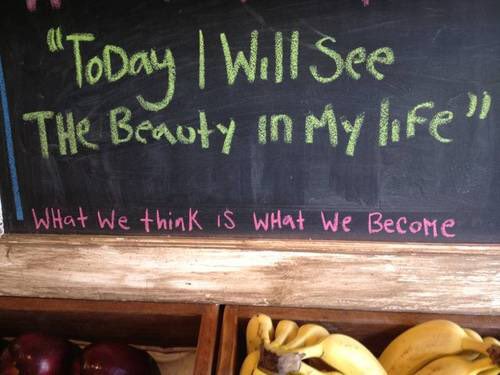 "Today I Will See
THe Beauty in My life"
WHat We think is WHat We Become